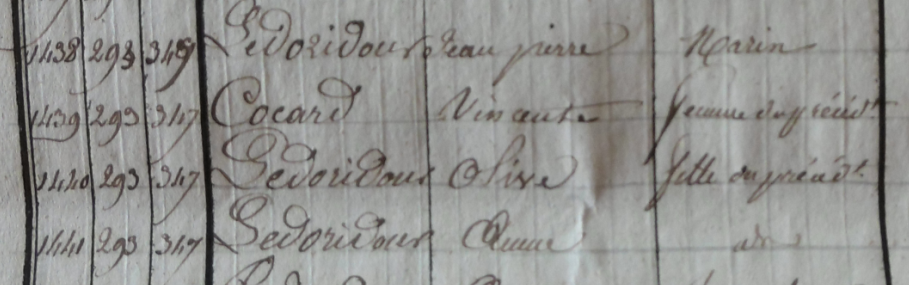 1438 293 347 Ledoridour Jean pierre Marin
1439 293 347 Cocard Vincente femme du précédt.
1440 293 347 Ledoridour Olive fille du précédt.
1441 293 347 Ledoridour Anne idm